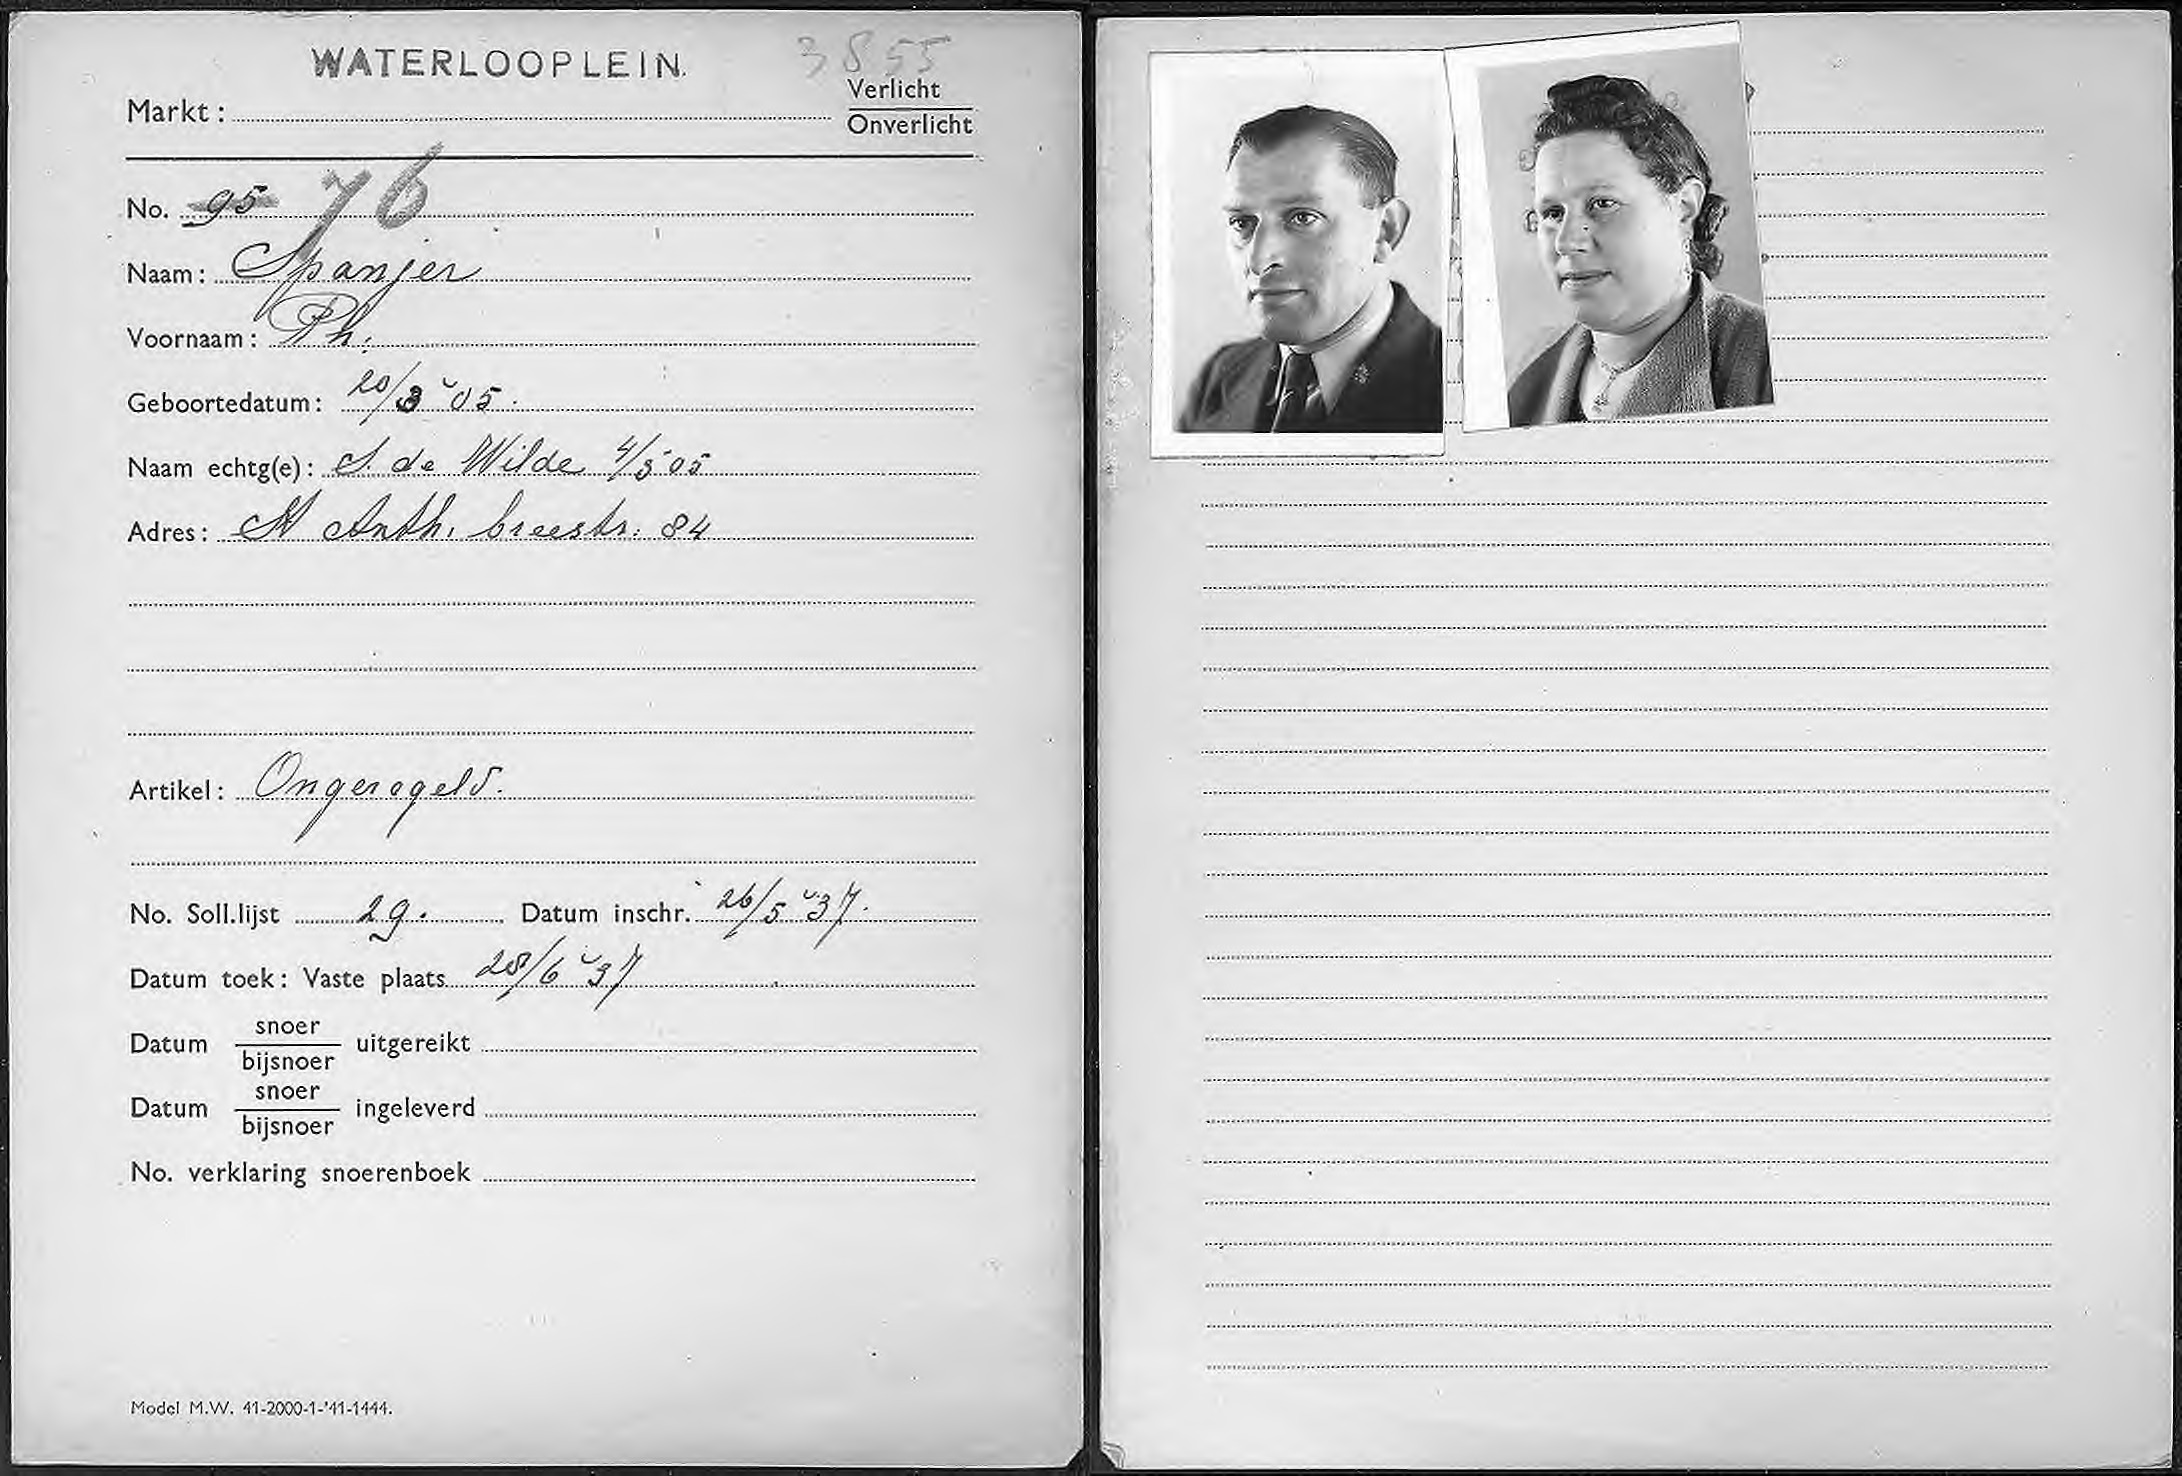 WATERLOOPLEIN.
3855
Verlicht
Markt :
Onverlicht
No. 95 76
Naam : Spanjer
Voornaam : Ph.
Geboortedatum : 20/3 '05.
Naam echtg(e) : S. de Wilde 4/5 05
Adres : St Anth. breestr. 84
Artikel : Ongeregeld.
No. Soll.lijst 29. Datum inschr. 26/5 '37.
Datum toek : Vaste plaats 28/6 '37
snoer
Datum uitgereikt
bijsnoer
snoer
Datum ingeleverd
bijsnoer
No. verklaring snoerenboek
Model M.W. 41-2000-1-'41-1444.